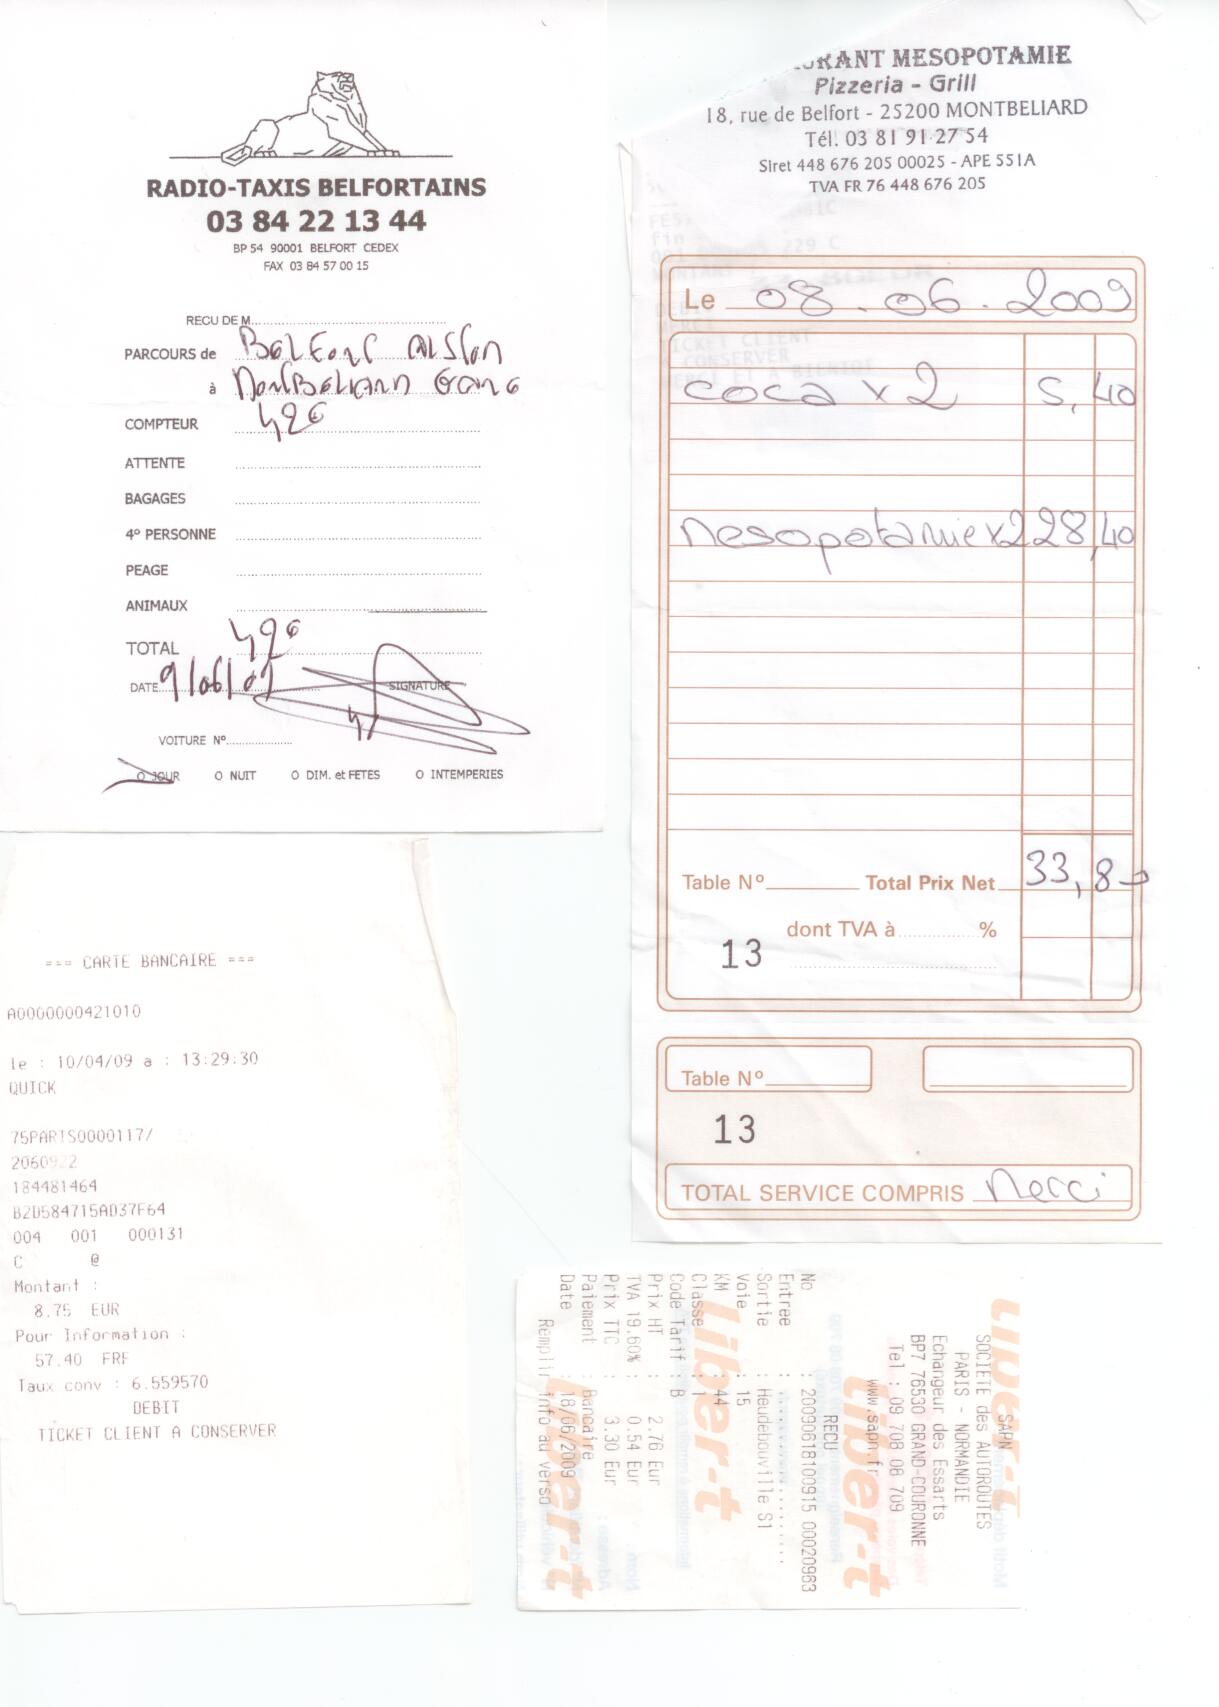 RADIO-TAXIS BELFORTAINS
03 84 22 13 44
BP 54 90001 BELFORT CEDEX
FAX 03 84 57 00 15
RECU DE M
PARCOURS de BELFORT ALSTOM
à MONTBELIARD GARE
COMPTEUR 42€
ATTENTE
BAGAGES
4º PERSONNE
PEAGE
ANIMAUX
TOTAL 42€
DATE 9/06/09 SIGNATURE
VOITURE Nº
O JOUR O NUIT O DIM. et FETES O INTEMPERIES
URANT MESOPOTAMIE
Pizzeria - Grill
18, rue de Belfort - 25200 MONTBELIARD
Tél. 03 81 91 27 54
Siret 448 676 205 00025 - APE 551A
TVA FR 76 448 676 205
Le 08.06.2009
TICKET CLIENT
A CONSERVER
MERCI ET A BIENTOT
coca x 2 5,40
mesopotamie x2 28,40
Table Nº Total Prix Net 33,80
dont TVA à %
13
Table Nº
13
TOTAL SERVICE COMPRIS Merci
=== CARTE BANCAIRE ===
A0000000421010
le : 10/04/09 a : 13:29:30
QUICK
75PARIS0000117/
2060922
184481464
B2D584715AD37F64
004 001 000131
C @
Montant :
8.75 EUR
Pour Information :
57.40 FRF
Taux conv : 6.559570
DEBIT
TICKET CLIENT A CONSERVER
liber-t
SAPN
SOCIETE des AUTOROUTES
PARIS - NORMANDIE
Echangeur des Essarts
BP7 76530 GRAND-COURONNE
Tel : 09 708 08 709
www.sapn.fr
liber-t
RECU
No : 20090618100915 00020983
Entree :
Sortie : Heudebouville S1
Voie : 15
KM : 44
liber-t
Classe : 1
Code Tarif : B
Prix HT : 2.76 Eur
TVA 19.60% : 0.54 Eur
Prix TTC : 3.30 Eur
Paiement : Bancaire
Date : 18/06/2009
liber-t
Remplir info au verso